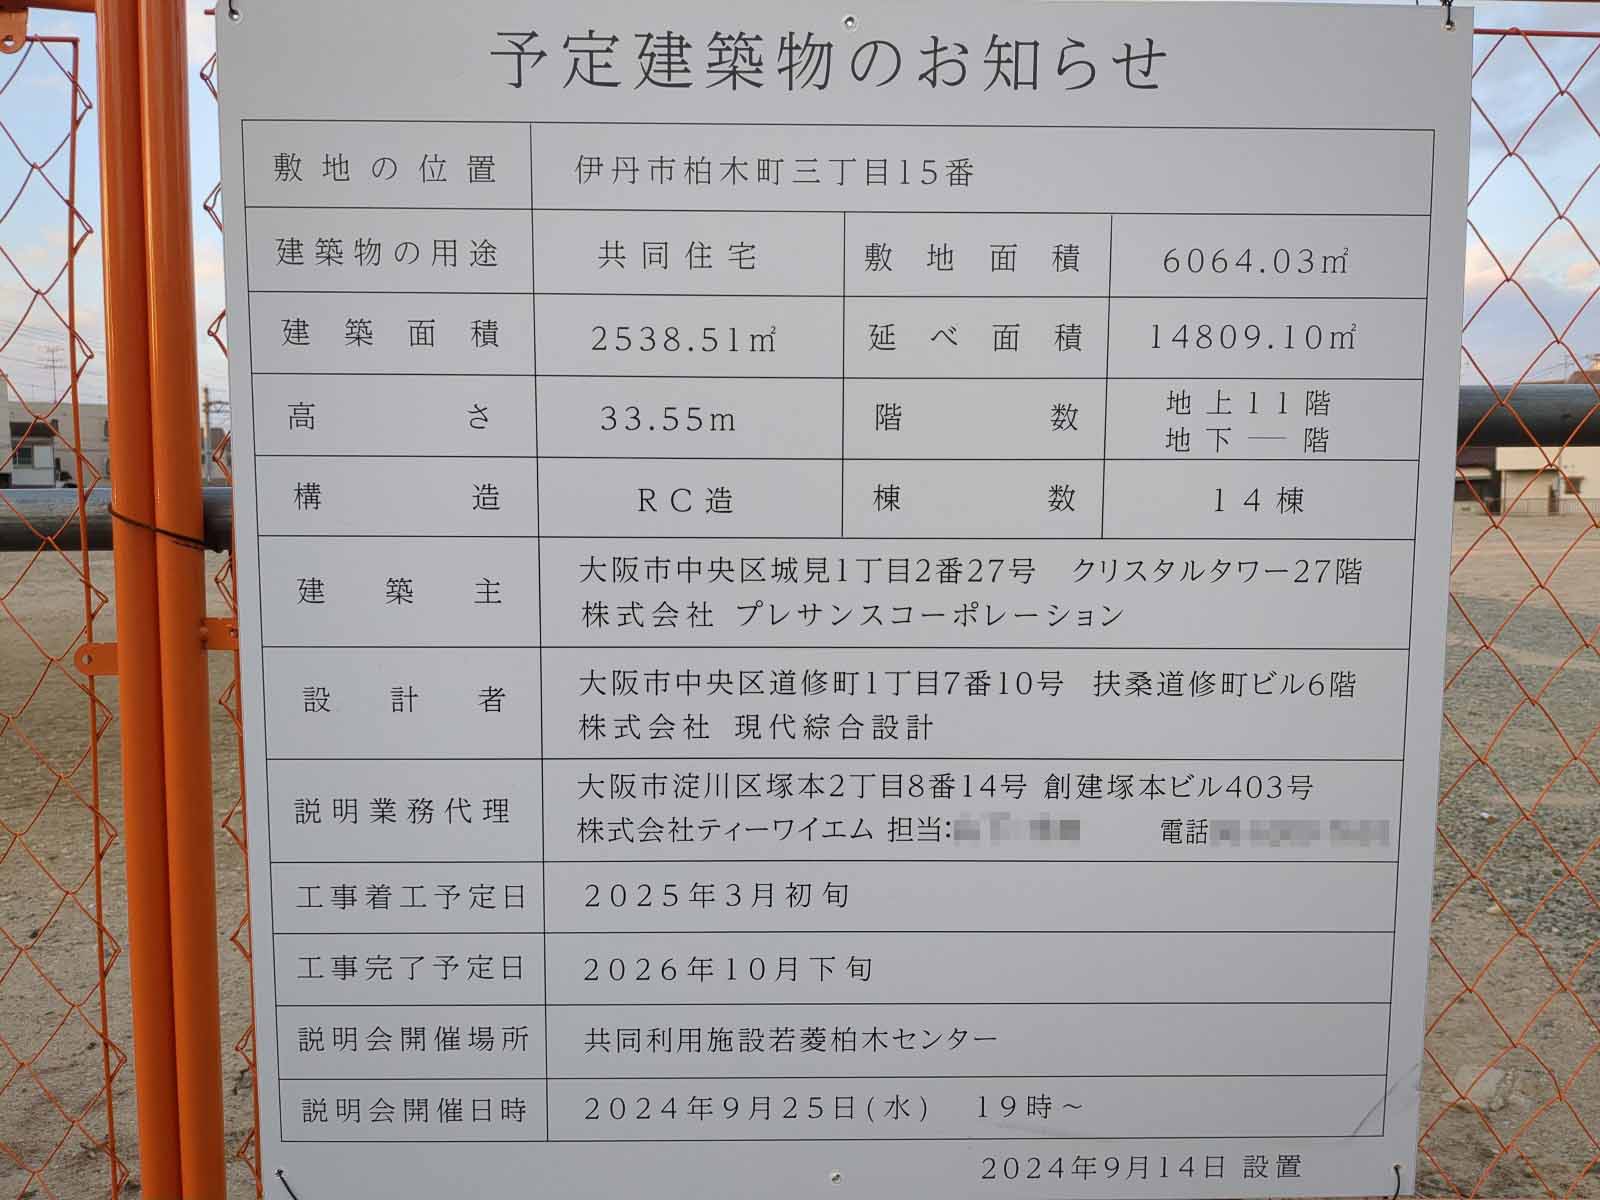 予定建築物のお知らせ
敷地の位置 伊丹市柏木町三丁目15番
建築物の用途 共同住宅 敷地面積 6064.03㎡
建築面積 2538.51㎡ 延べ面積 14809.10㎡
高さ 33.55m 階数 地上11階
地下―階
構造 RC造 棟数 14棟
建築主 大阪市中央区城見1丁目2番27号 クリスタルタワー27階
株式会社 プレサンスコーポレーション
設計者 大阪市中央区道修町1丁目7番10号 扶桑道修町ビル6階
株式会社 現代綜合設計
説明業務代理 大阪市淀川区塚本2丁目8番14号 創建塚本ビル403号
株式会社ティーワイエム 担当: 電話
工事着工予定日 2025年3月初旬
工事完了予定日 2026年10月下旬
説明会開催場所 共同利用施設若菱柏木センター
説明会開催日時 2024年9月25日(水) 19時~
2024年9月14日 設置